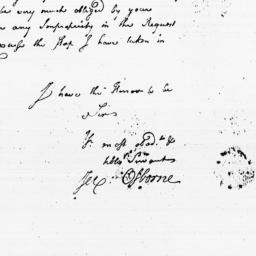 be very much obliged by your
any Impropriety in the Request
excuse the Step I have taken in
I have the Honor to be
Sir
Yr. most obedt. &
hble Servant
Osborne